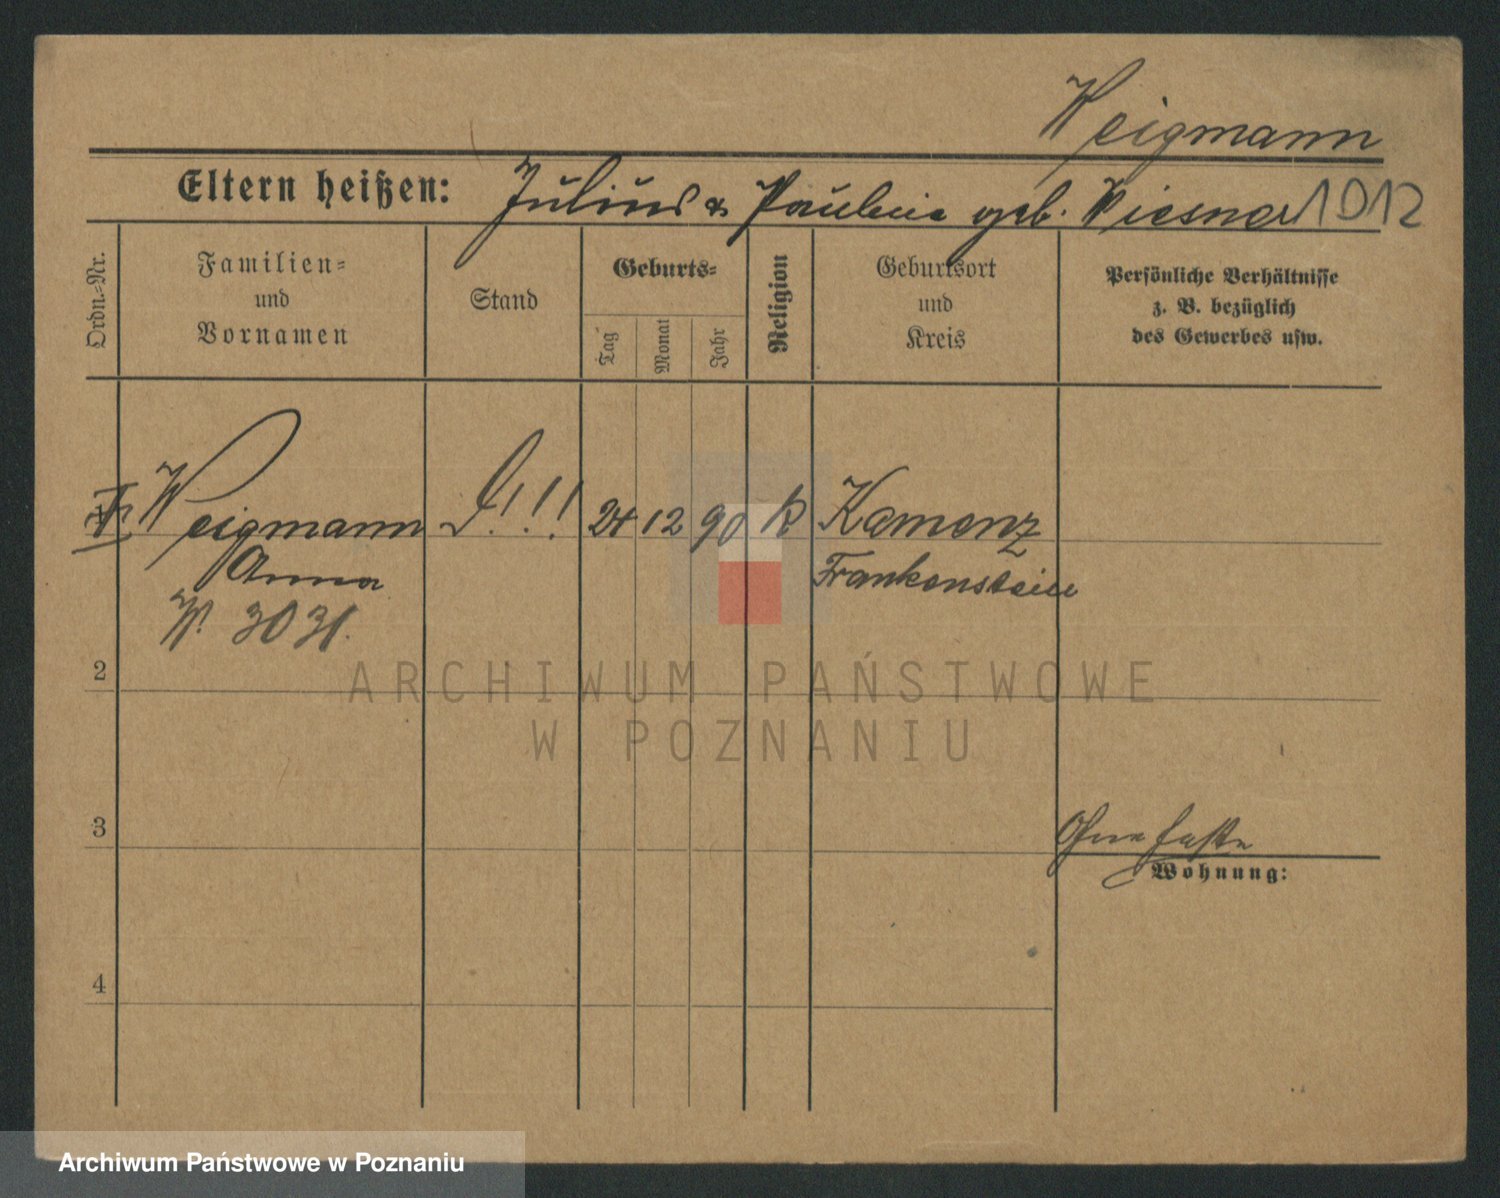 Weigmann
Eltern heißen: Julius & Pauline geb. Wiesner 1012
Ordn.=Nr.
Familien=
und
Vornamen
Stand
Geburts=
Tag
Monat
Jahr
Religion
Geburtsort
und
Kreis
Persönliche Verhältnisse
z. B. bezüglich
des Gewerbes usw.
Weigmann !!! 24 12 90 k Kamenz
Anna Frankenstein
W. 3031.
2
3
4
Ohne feste
Wohnung:
ARCHIWUM PAŃSTWOWE
W POZNANIU
Archiwum Państwowe w Poznaniu